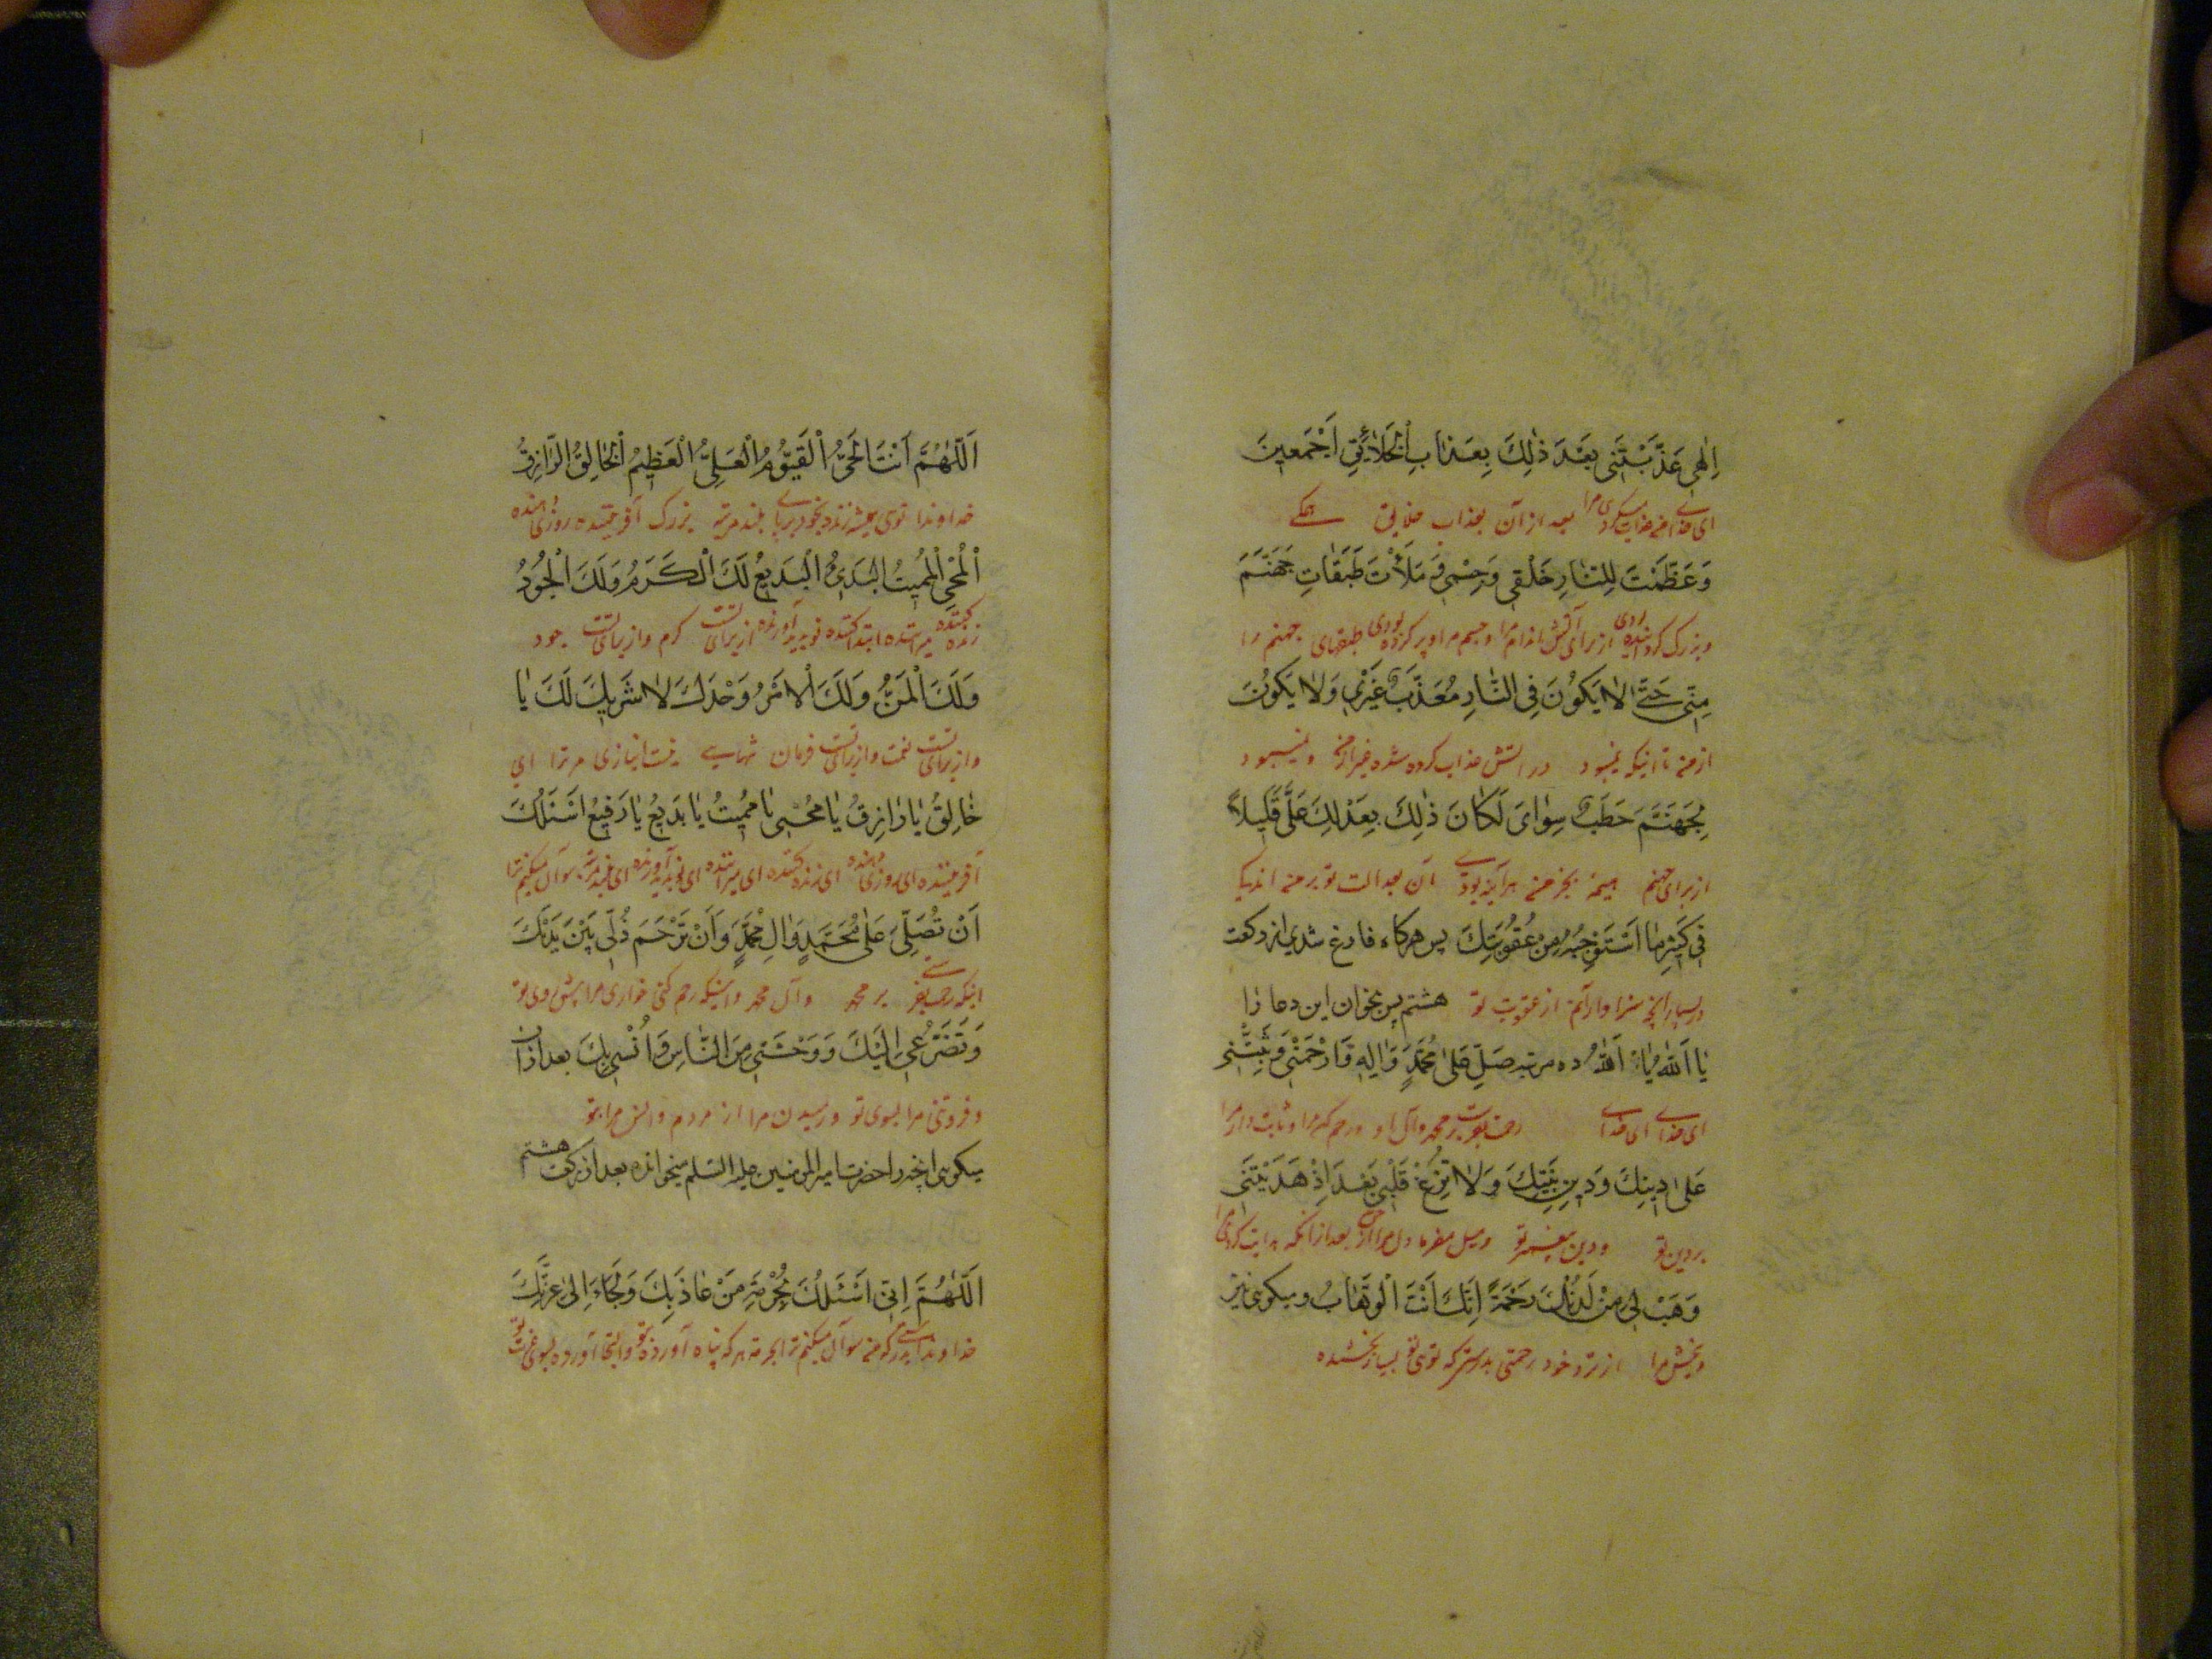 اِلٰهِی عَذَّبْتَنِی بَعْدَ ذٰلِكَ بِعَذٰابِ الْخَلاٰئِقِ اَجْمَعِینَ
بعد از آن بعذاب خلایق همگی
وَعَظَّمْتَ لِلنّٰارِ خَلْقِی وَجِسْمِی وَ مَلَأْتَ طَبَقٰاتِ جَهَنَّمَ
و بزرگ گردانیده بودی از برای آتش اندام مرا و جسم مرا و پر کرده بودی طبقهای جهنم را
مِنّی حَتّٰی لاٰ یَكُونَ فِی النّٰارِ مُعَذَّبٌ غَیْرِی وَلاٰ یَكُونَ
از من تا اینکه نمیبود در آتش عذاب کرده شده غیر از من و نمیبود
لِجَهَنَّمَ حَطَبٌ سِوٰایَ لَكٰانَ ذٰلِكَ بِعَدْلِكَ عَلَیَّ قَلِیلاً
از برای جهنم هیمه بجز من هر آینه بودی آن بعدالت تو بر من اندک
فِی كَثِیرِ مٰا اَسْتَوْجِبُهُ مِنْ عُقُوبَتِكَ پس هرکاه فارغ شدی از رکعت
در بسیار آنچه سزاوار آنم از عقوبت تو هشتم پس بخوان این دعا را
یٰا اَللّٰهُ یٰا اَللّٰهُ ده مرتبه صَلِّ عَلیٰ مُحَمَّدٍ وَاٰلِهِ وَارْحَمْنِی وَثَبِّتْنِی
ای خدای ای خدای رحمت بفرست بر محمد و آل او و رحم کن مرا و ثابت دار مرا
عَلیٰ دِینِكَ وَدِینِ نَبِیِّكَ وَلاٰ تُزِغْ قَلْبِی بَعْدَ اِذْ هَدَیْتَنِی
بر دین تو و دین پیغمبر تو و میل مفرما دل مرا از حق بعد از آنکه هدایت کردی مرا
وَهَبْ لِی مِنْ لَدُنْكَ رَحْمَةً اِنَّكَ اَنْتَ الْوَهّٰابُ و میکوئی نیز
و ببخش مرا از نزد خود رحمتی بدرستیکه توئی تو بسیار بخشنده
اَللّٰهُمَّ اَنْتَ الْحَیُّ الْقَیُّومُ الْعَلِیُّ الْعَظِیمُ الْخٰالِقُ الرّٰازِقُ
خداوندا توئی همیشه زنده بخود برپای بلند مرتبه بزرگ آفریننده روزی دهنده
اَلْمُحْیِی الْمُمِیتُ الْبَدِیءُ الْبَدِیعُ لَكَ الْكَرَمُ وَلَكَ الْجُودُ
زنده کننده میراننده ابتدا کننده نو پدید آورنده از برای تست کرم و از برای تست جود
وَلَكَ الْمَنُّ وَلَكَ الْاَمْرُ وَحْدَكَ لاٰ شَرِیكَ لَكَ یٰا
و از برای تست نعمت و از برای تست فرمان تنهایی نیست انبازی مر ترا ای
خٰالِقُ یٰا رٰازِقُ یٰا مُحْیِی یٰا مُمِیتُ یٰا بَدِیعُ یٰا رَفِیعُ اَسْئَلُكَ
آفریننده ای روزی دهنده ای زنده کننده ای میراننده ای نو پدید آورنده ای بلند مرتبه سوآل میکنم ترا
اَنْ تُصَلِّیَ عَلیٰ مُحَمَّدٍ وَاٰلِ مُحَمَّدٍ وَاَنْ تَرْحَمَ ذُلّی بَیْنَ یَدَیْكَ
اینکه رحمت بفرستی بر محمد و آل محمد و اینکه رحم کنی خواری مرا پیش روی تو
وَتَضَرُّعِی اِلَیْكَ وَوَحْشَتِی مِنَ النّٰاسِ وَاُنْسِی بِكَ بعد از ان
و فروتنی مرا بسوی تو و رمیدن مرا از مردم و انس مرا بتو
میکوئی انچه را حضرت امیرالمؤمنین علیه السّلم میخوانده بعد از رکعت هشتم
اَللّٰهُمَّ اِنّی اَسْئَلُكَ بِحُرْمَةِ مَنْ عٰاذَ بِكَ وَلَجَاءَ اِلیٰ عِزِّكَ
خداوندا بدرستیکه من سوآل میکنم ترا بحرمت هر که پناه آورده بتو و التجا آورده بسوی عزت تو